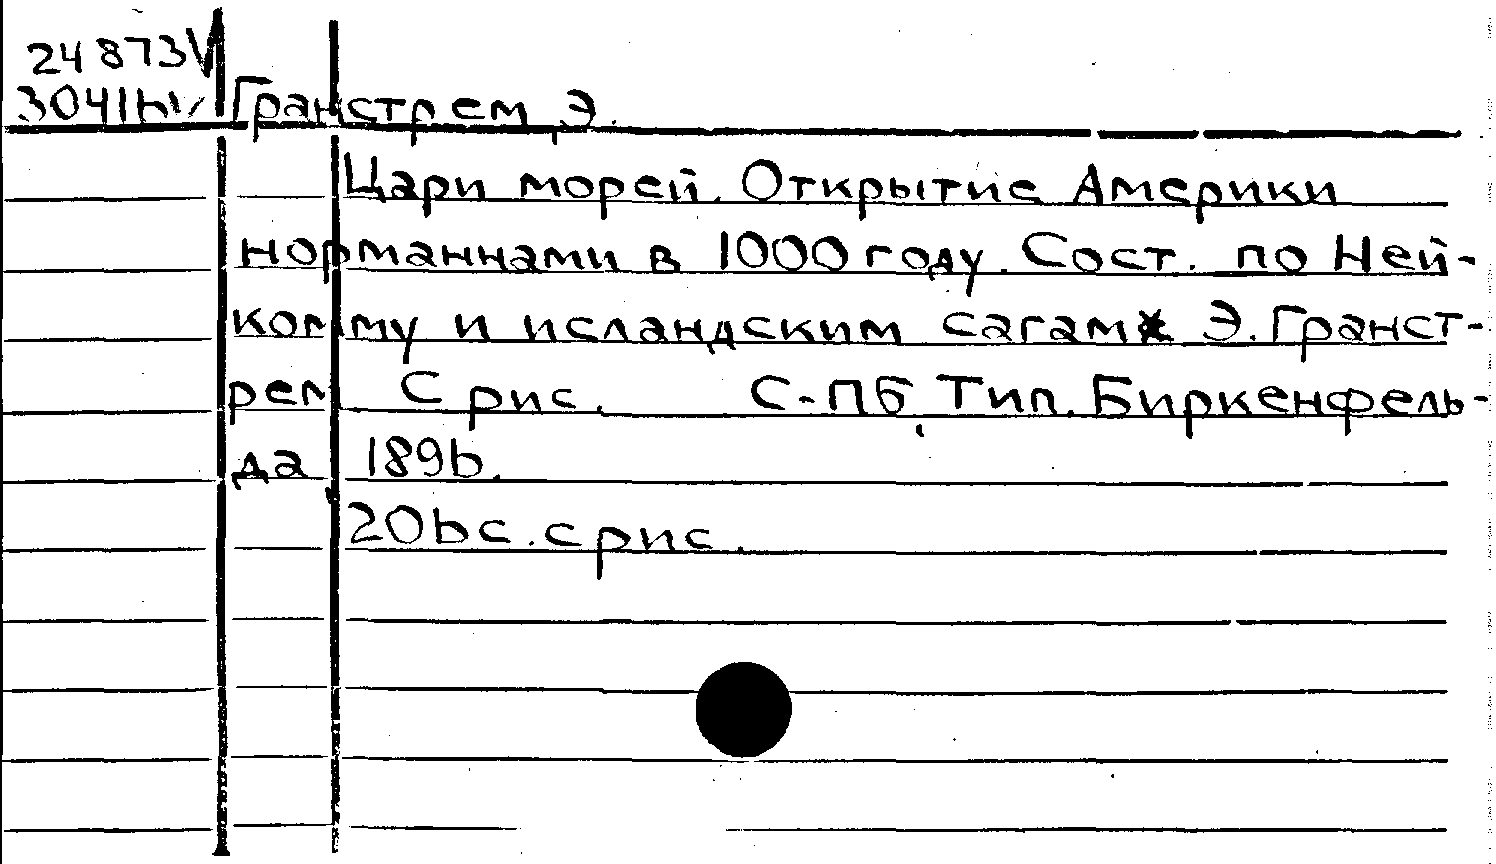 24 873V
30416V Гранстрем, Э.
Цари морей. Открытие Америки
норманнами в 1000 году. Сост. по Ней-
комму и исландским сагам Э. Гранст-
рем С рис. С-ПБ, Тип. Биркенфель-
да 1896.
206 с. с рис.